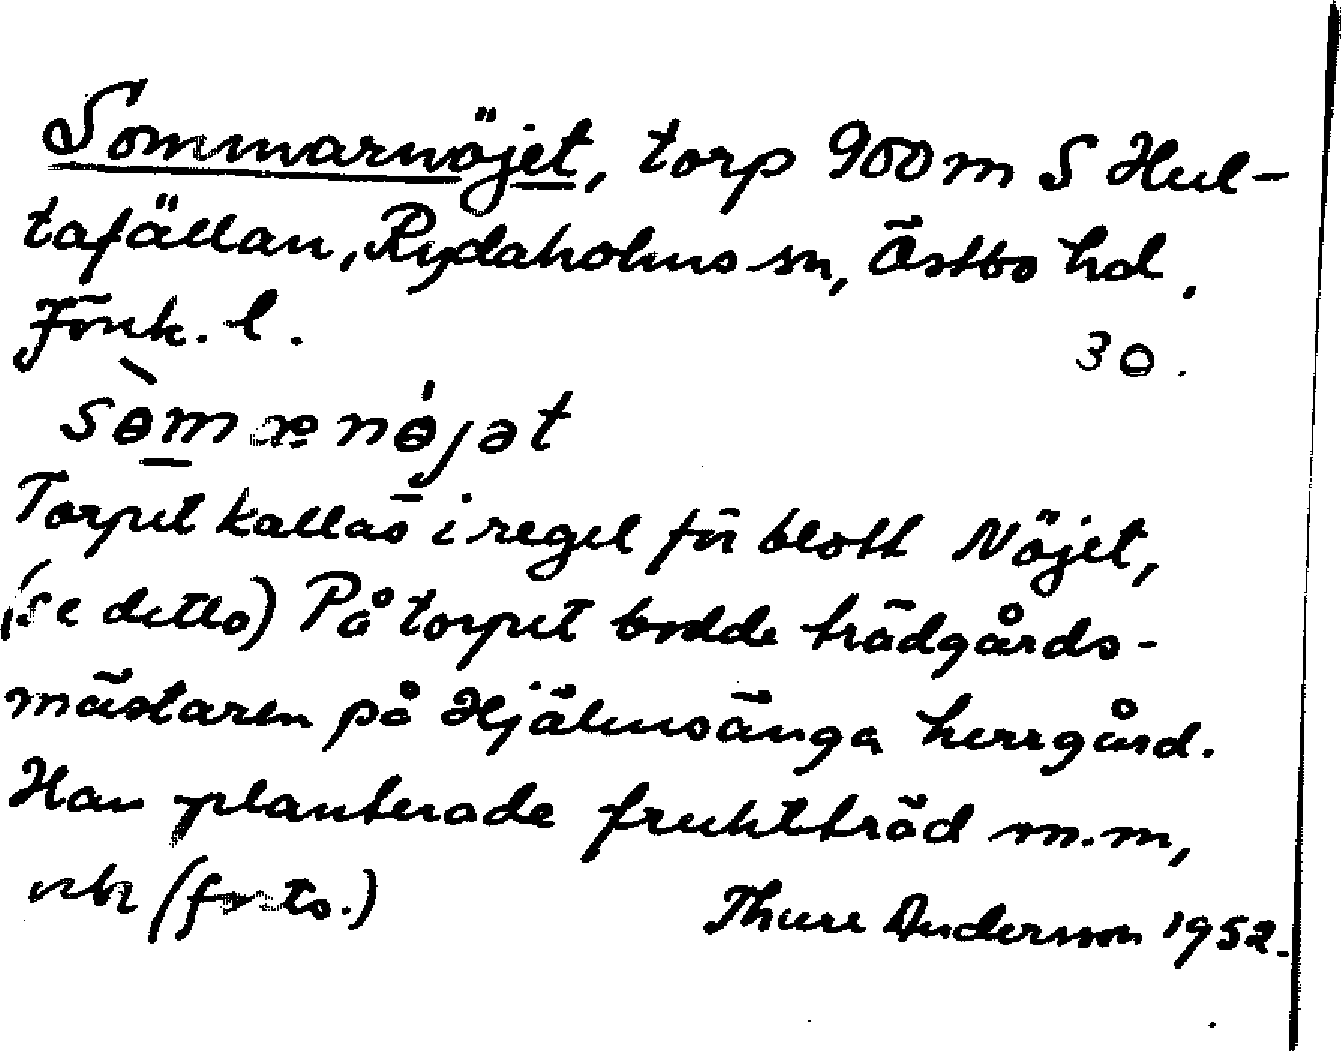 Sommarnöjet, torp 900 m S Hul-
tafällan, Rydaholms sn, Östbo hd.
Jönk. l.
30.
sɵ̀marnɵ́jət
Torpet kallas i regel för blott Nöjet,
(se detto) På torpet bodde trädgårds-
mästaren på Hjälmsänga herrgård.
Han planterade fruktträd m.m,
och (forts.)
Thure Andersson 1952.